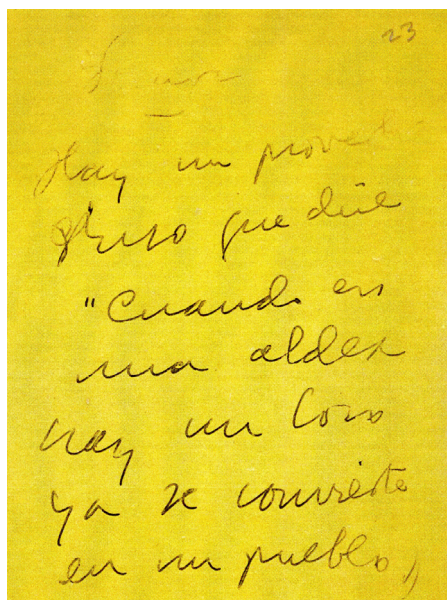 23
Hay un prover
Ruso que dice
"Cuando en
una aldea
hay un Coro
ya se convierte
en un pueblo,